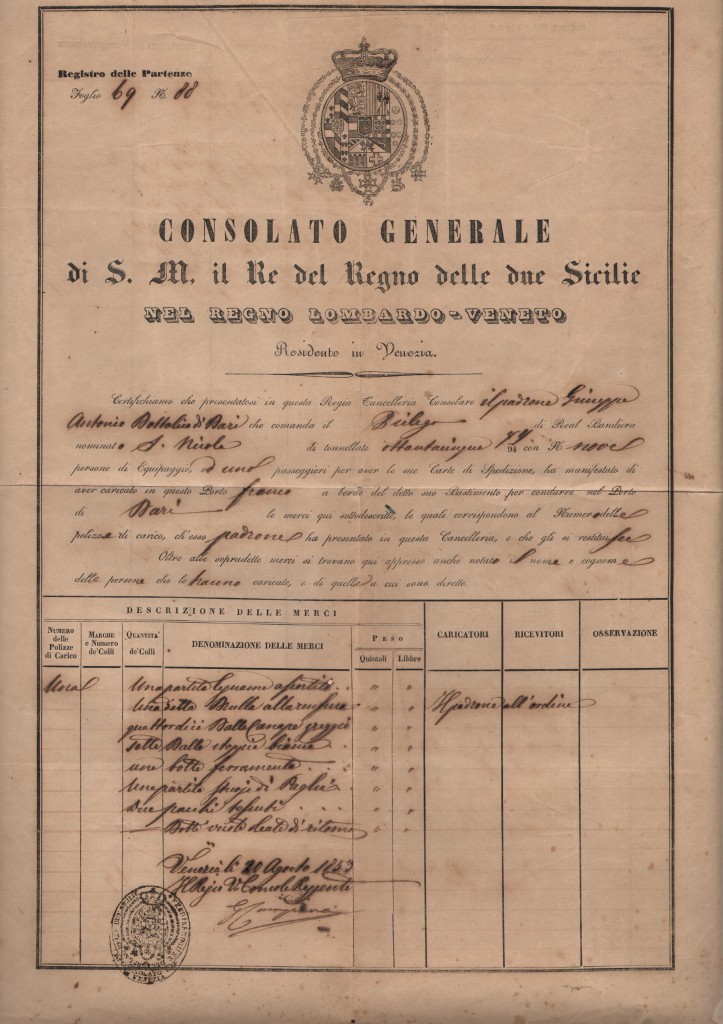 Registro delle Partenze
Foglio 69 N. 88
CONSOLATO GENERALE
di S. M. il Re del Regno delle due Sicilie
NEL REGNO LOMBARDO-VENETO
Residente in Venezia.
Certifichiamo che presentatosi in questa Regia Cancelleria Consolare il padrone Giuseppe
Antonio di Bari che comanda il di Real Bandiera
nominato S. Nicola di tonnellate ottantacinque 94 con N. nove
persone di Equipaggio, ed uno passeggieri per aver le sue Carte di Spedizione, ha manifestato di
aver caricato in questo Porto franco a bordo del detto suo Bastimento per condurre nel Porto
di Bari le merci qui sottodescritte, le quali corrispondono al Numero delle
polizze di carico, ch'esso padrone ha presentato in questa Cancelleria, e che gli si restituisce
Oltre alle sopradette merci si trovano qui appresso anche notato il nome e cognome
delle persone che le hanno caricate, e di quelle a cui sono dirette.
DESCRIZIONE DELLE MERCI
NUMERO delle Polizze di Carico
MARCHE e Numero de' Colli
QUANTITA' de' Colli
DENOMINAZIONE DELLE MERCI
PESO
Quintali
Libbre
CARICATORI
RICEVITORI
OSSERVAZIONE
Una Una partita legname assortito " "
Una detta alla rinfusa " " Il padrone all'ordine
quattordici Balle Canape greggio " "
sette Balle stoppie " "
una botte ferramenta " "
Una partita di Paglia " "
due pacchi tessuti " "
Botti vuote di ritorno " "
Venezia li 20 Agosto 1853
Il Regio V. Console Reggente